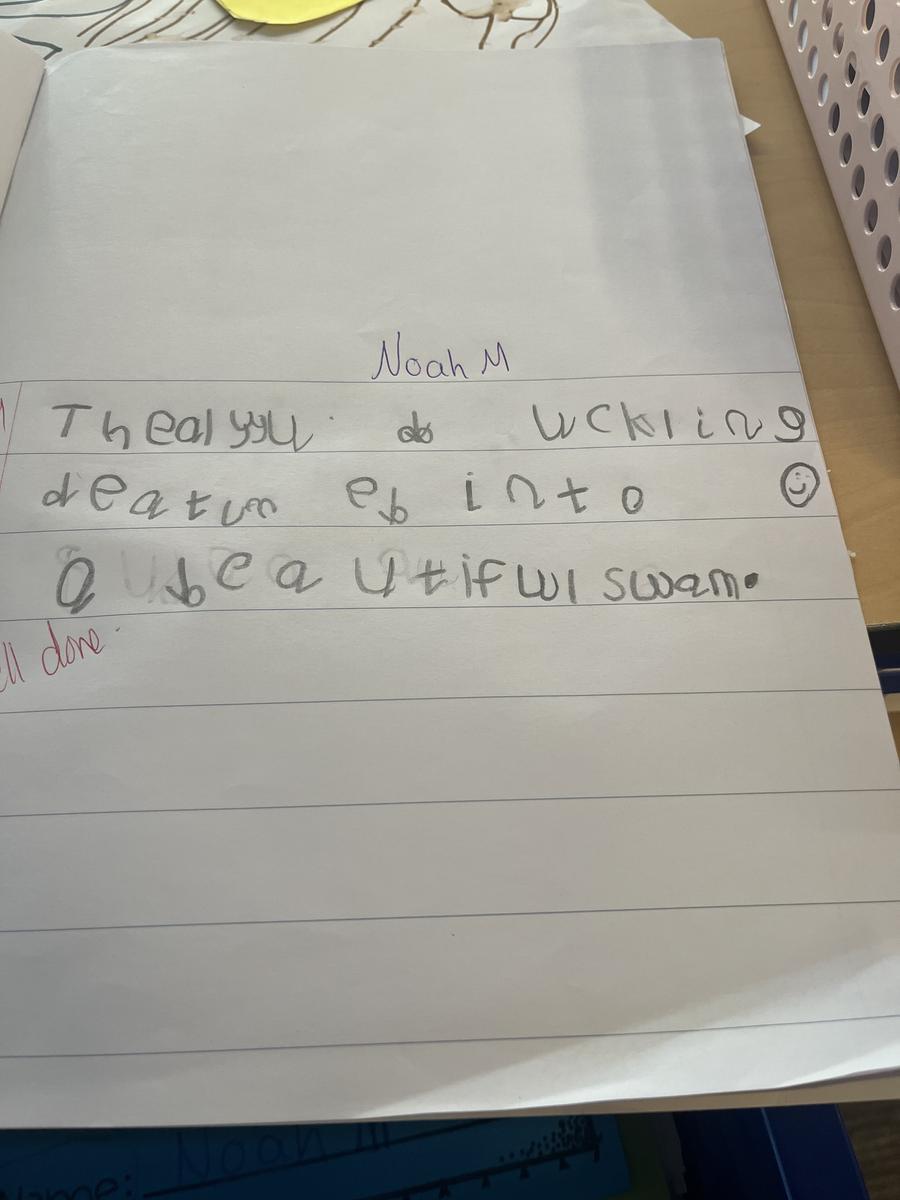 Noah M
Thealyyu. do uckling
deatun eb into
a beautifwl swam.
ll done.
Name: Noah M